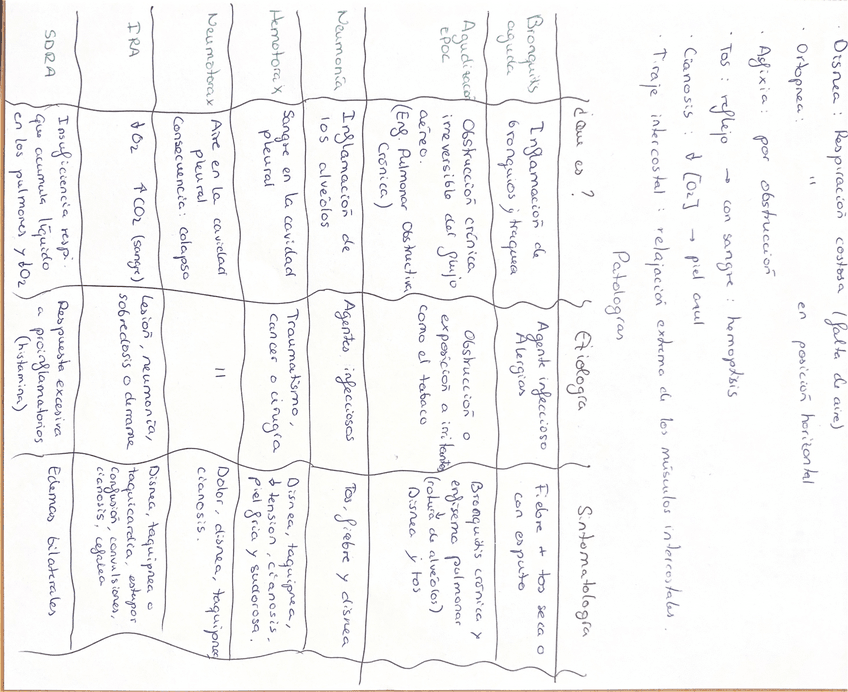 · Disnea: Respiración costosa (falta de aire)
· Ortopnea: " en posición horizontal
· Asfixia: por obstrucción
· Tos: reflejo → con sangre: hemoptisis
· Cianosis: ↓ [O2] → piel azul
· Tiraje intercostal: relajación extrema de los músculos intercostales.
Patologías
¿Que es?
Etiología
Sintomatología
Bronquitis
aguda
Inflamación de
bronquios y traquea
Agente infeccioso
Alergias
Fiebre + tos seca o
con esputo
Agudización
EPOC
Obstrucción crónica
irreversible del flujo
aéreo.
(Enf. Pulmonar Obstructiva
Crónica)
Obstrucción o
exposición a irritantes
como el tabaco
Bronquitis crónica y
enfisema pulmonar
(rotura de alveolos)
Disnea y tos
Neumonía
Inflamación de
los alvéolos
Agentes infecciosos
Tos, fiebre y disnea
Hemotorax
Sangre en la cavidad
pleural
Traumatismo,
cancer o cirugía
Disnea, taquipnea,
↓ tension, cianosis,
piel fria y sudorosa.
Neumotorax
Aire en la cavidad
pleural
Consecuencia: colapso
"
Dolor, disnea, taquipnea
cianosis.
IRA
↓O2 ↑CO2 (sangre)
Lesión, neumonía,
sobredosis o derrame
Disnea, taquipnea o
taquicardia, estupor
confusión, convulsiones,
cianosis, cefalea
SDRA
Insuficiencia respi.
que acumula líquido
en los pulmones y ↓O2
Respuesta excesiva
a proinflamatorios
(histamina)
Edemas bilaterales